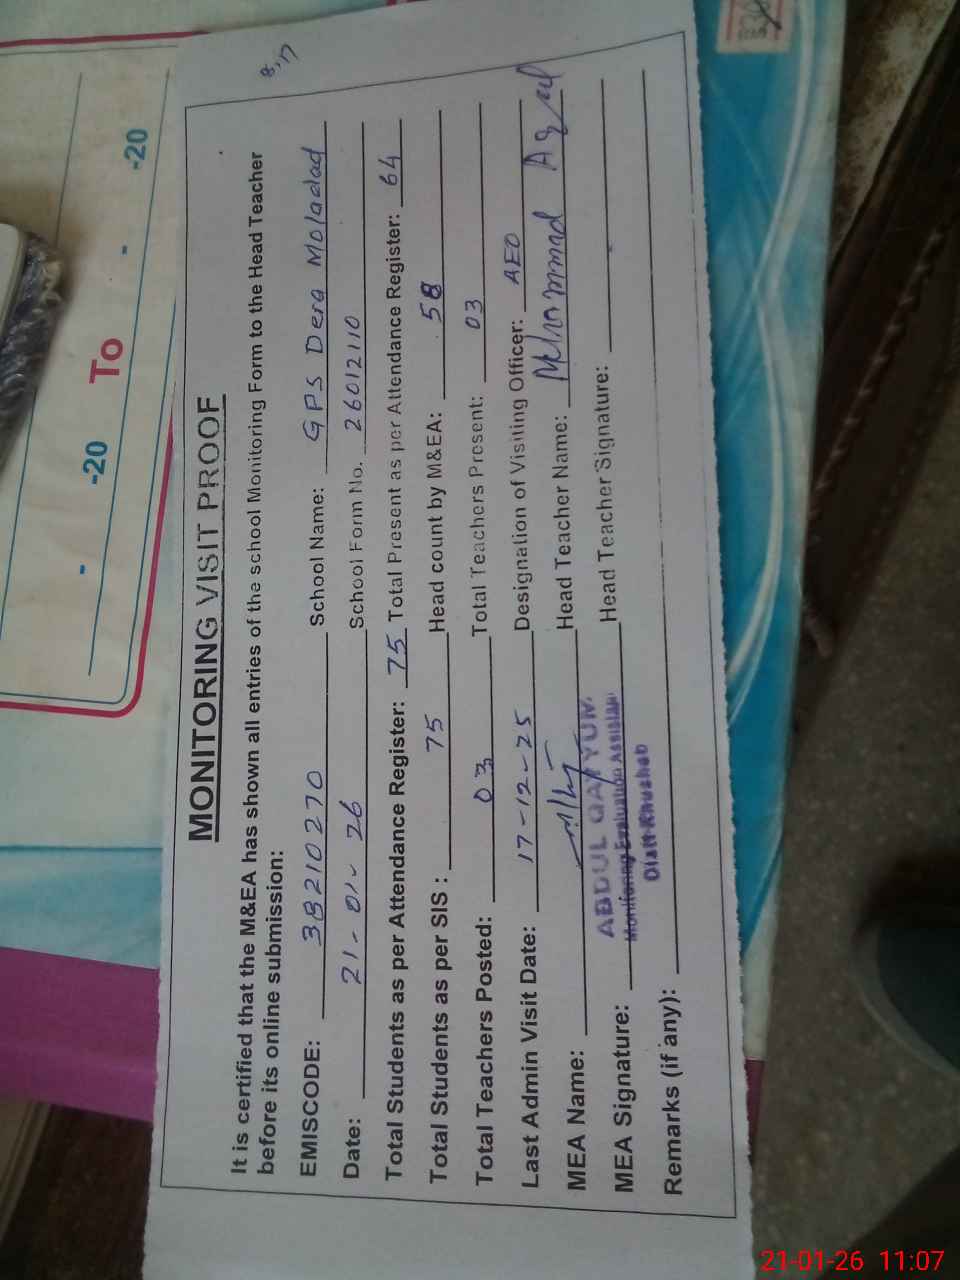 8,17
MONITORING VISIT PROOF
It is certified that the M&EA has shown all entries of the school Monitoring Form to the Head Teacher
before its online submission:
EMISCODE: 38210270 School Name: GPS Dera Moladad
Date: 21-01-26 School Form No. 26012110
Total Students as per Attendance Register: 75 Total Present as per Attendance Register: 64
Total Students as per SIS : 75 Head count by M&EA: 58
Total Teachers Posted: 03 Total Teachers Present: 03
Last Admin Visit Date: 17-12-25 Designation of Visiting Officer: AEO
MEA Name: Head Teacher Name: Mohammad
MEA Signature: ABDUL QAYYUM Head Teacher Signature:
Monitoring Evaluation Assistant
Distt Khushab
Remarks (if any):
-20 To - -20
-
21-01-26 11:07